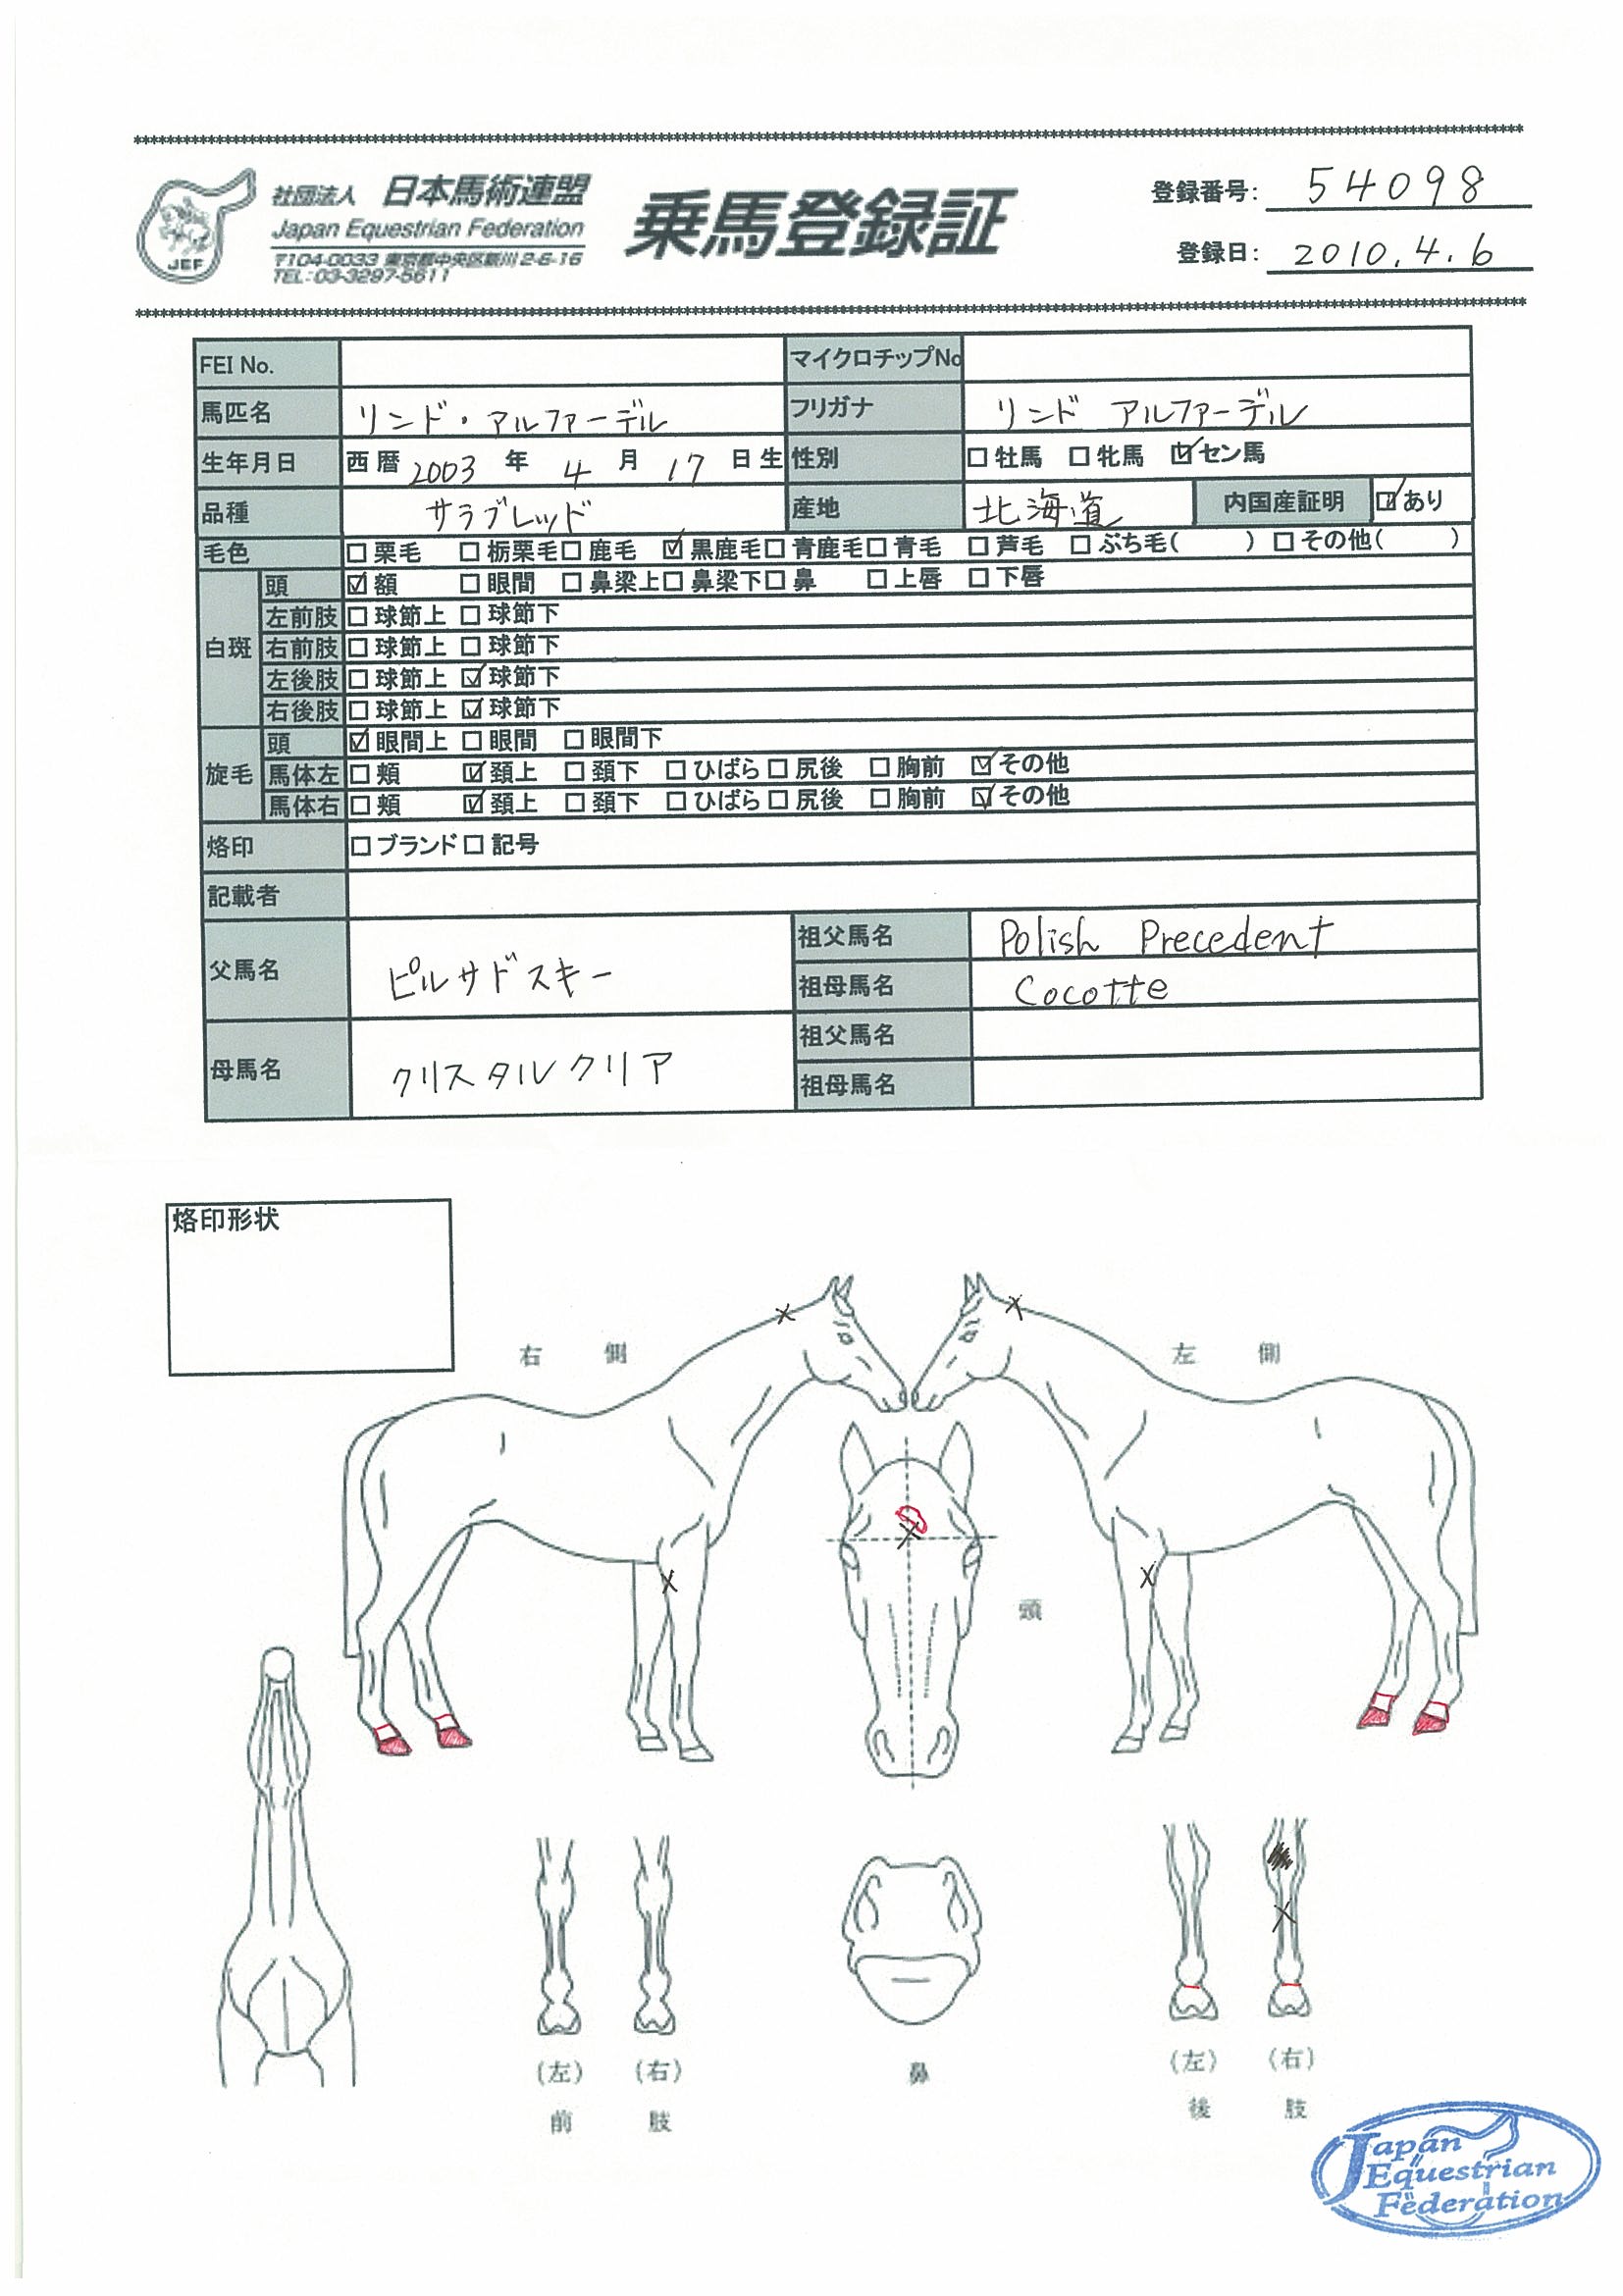 社団法人 日本馬術連盟
Japan Equestrian Federation
〒104-0033 東京都中央区新川2-6-16
TEL:03-3297-5611
JEF
乗馬登録証
登録番号: 54098
登録日: 2010.4.6
FEI No. マイクロチップNo
馬匹名 リンド・アルファーデル フリガナ リンド アルファーデル
生年月日 西暦 2003 年 4 月 17 日生 性別 □牡馬 □牝馬 ☑セン馬
品種 サラブレッド 産地 北海道 内国産証明 ☑あり
毛色 □栗毛 □栃栗毛 □鹿毛 ☑黒鹿毛 □青鹿毛 □青毛 □芦毛 □ぶち毛( ) □その他( )
白斑 頭 ☑額 □眼間 □鼻梁上 □鼻梁下 □鼻 □上唇 □下唇
左前肢 □球節上 □球節下
右前肢 □球節上 □球節下
左後肢 □球節上 ☑球節下
右後肢 □球節上 ☑球節下
旋毛 頭 ☑眼間上 □眼間 □眼間下
馬体左 □頬 ☑頚上 □頚下 □ひばら □尻後 □胸前 ☑その他
馬体右 □頬 ☑頚上 □頚下 □ひばら □尻後 □胸前 ☑その他
烙印 □ブランド □記号
記載者
父馬名 ピルサドスキー 祖父馬名 Polish Precedent
祖母馬名 Cocotte
母馬名 クリスタルクリア 祖父馬名
祖母馬名
烙印形状
右側 左側
頭
(左) (右) 鼻 (左) (右)
前肢 後肢
Japan
Equestrian
Federation